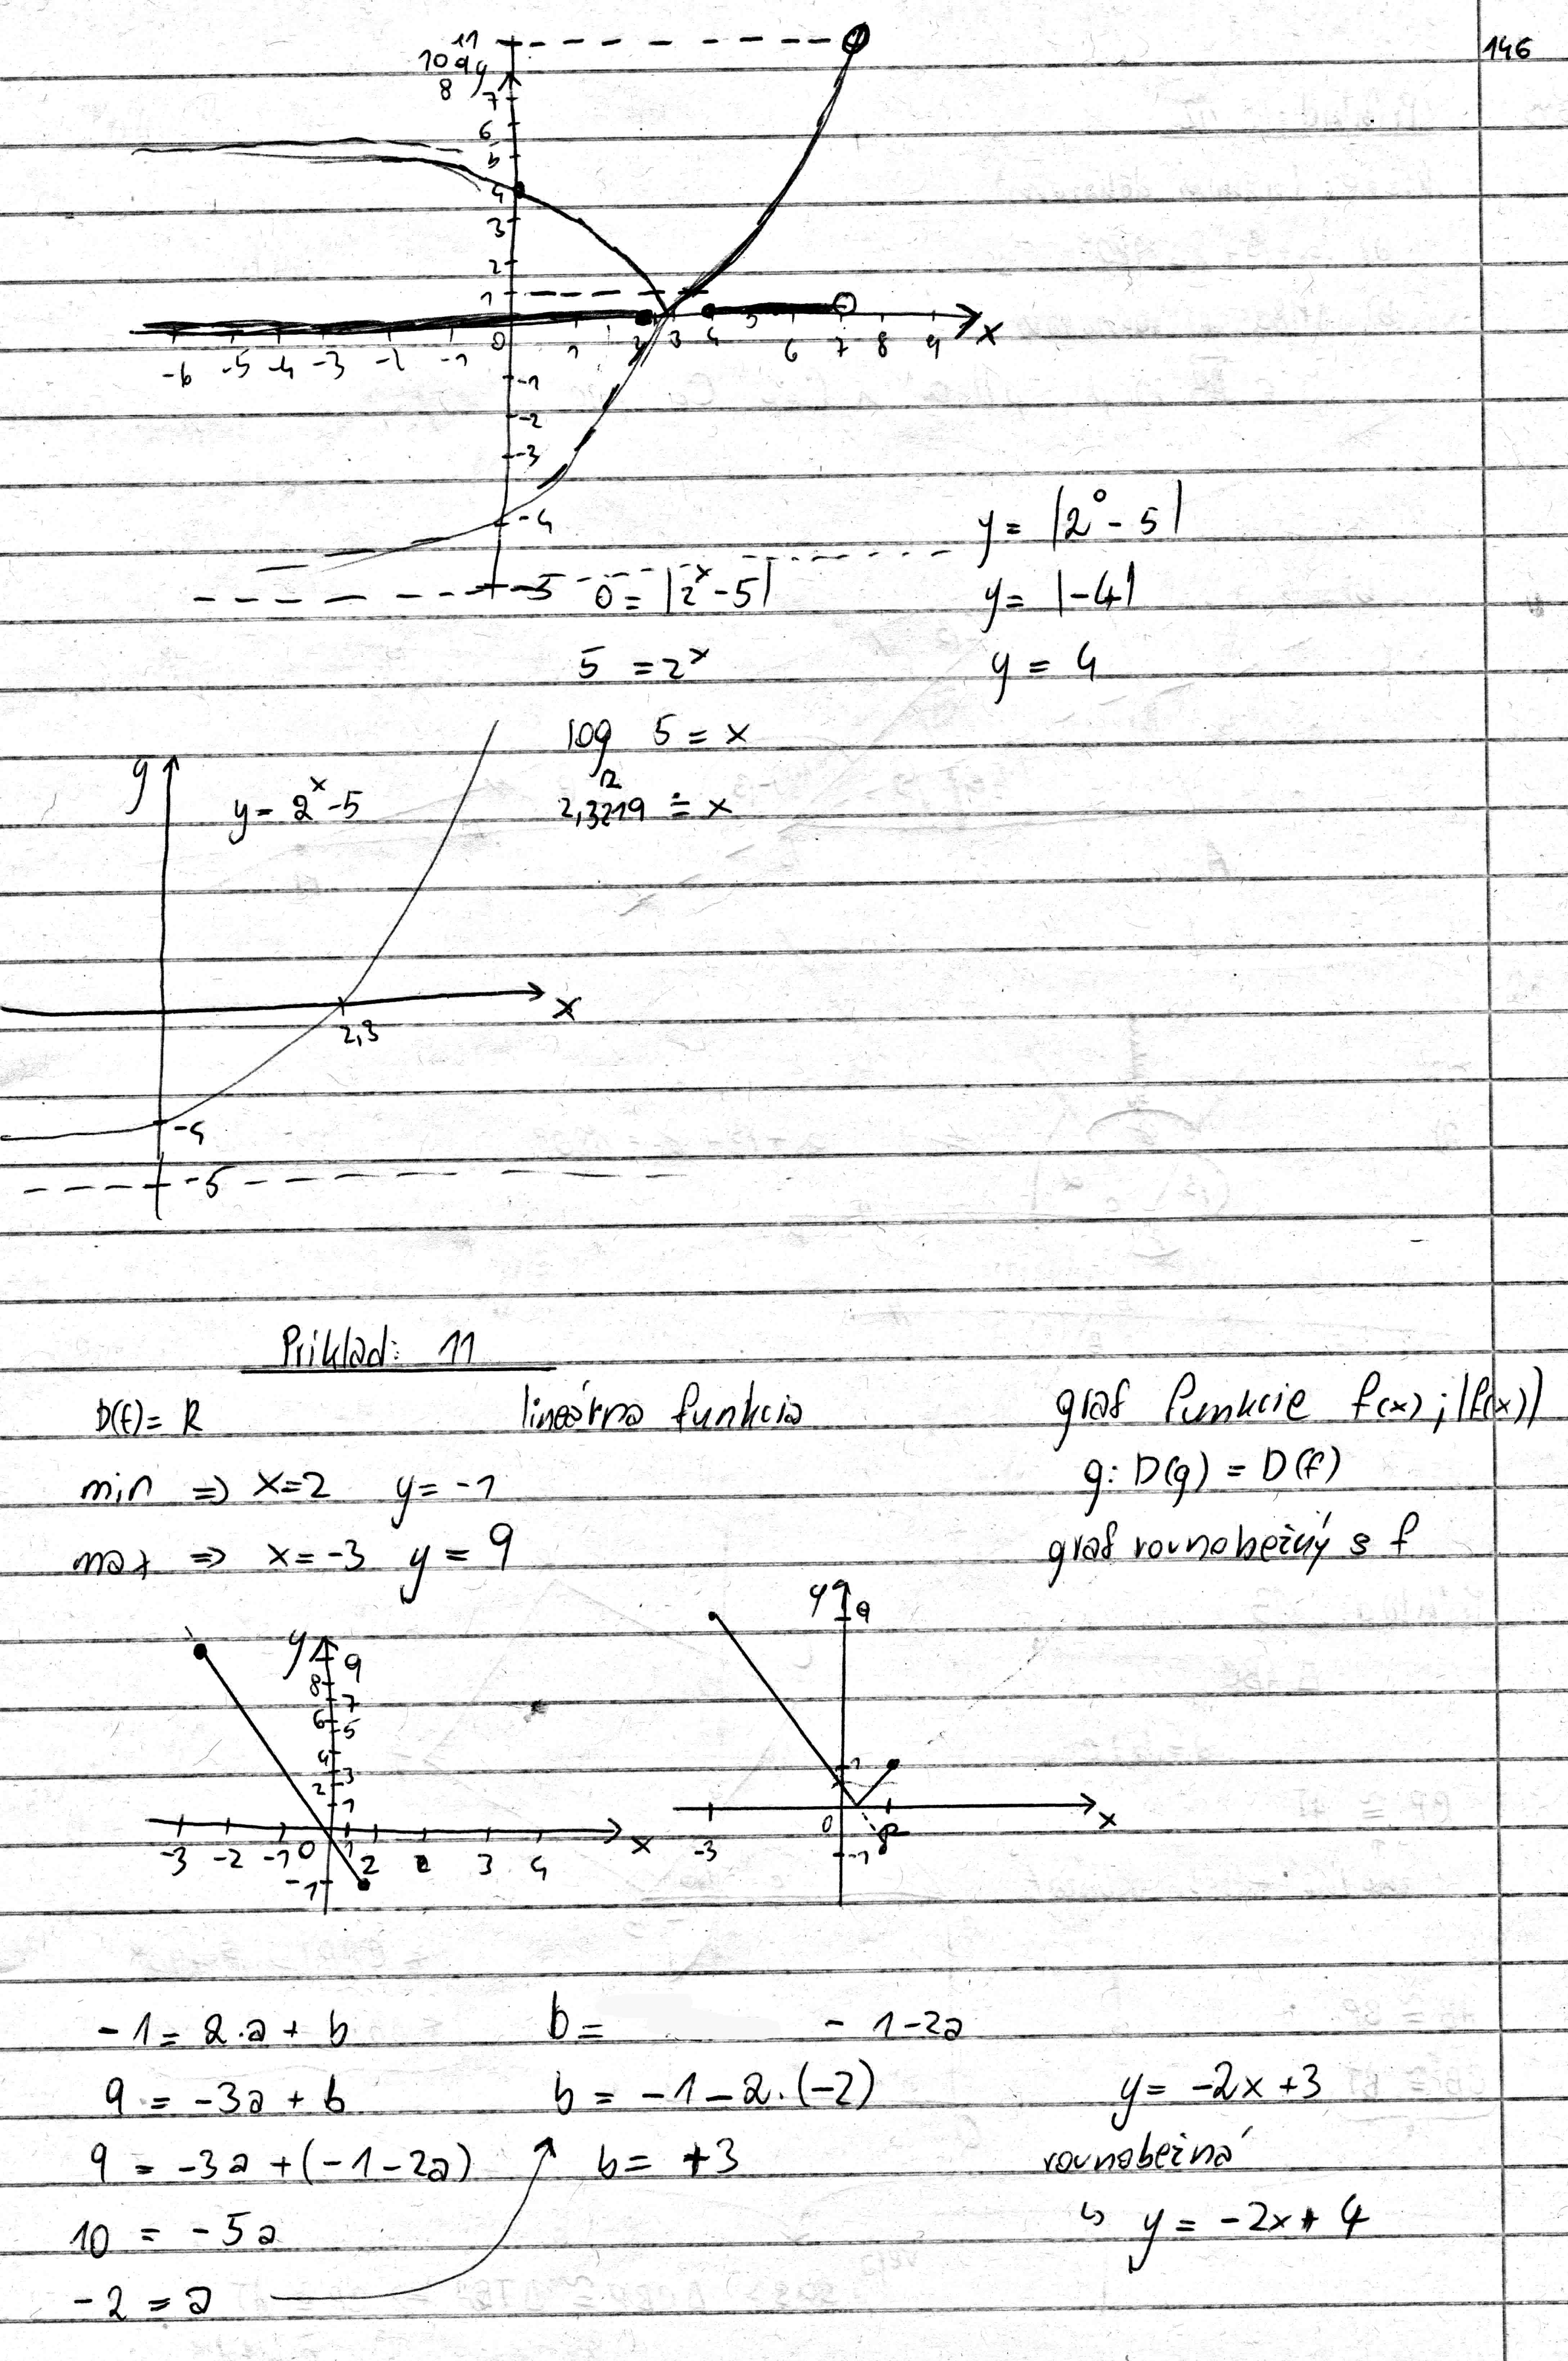 146
11
10 9 y
8
7
6
5
4
3
2
1
-6 -5 -4 -3 -2 -1 0 1 2 3 4 5 6 7 8 9 x
-1
-2
-3
-4
-5
y = |2⁰ - 5|
0 = |2ˣ - 5|
y = |-4|
5 = 2ˣ
y = 4
log₂ 5 = x
2,3219 ≐ x
y
y = 2ˣ - 5
x
2,3
-4
-5
Priklad: 11
D(f) = R lineárna funkcia graf funkcie f(x) ; |f(x)|
min => x=2 y= -1 g: D(g) = D(f)
max => x= -3 y = 9 graf rovnobežný s f
y 9
8
7
6
5
4
3
2
1
-3 -2 -1 0 1 2 2 3 4 x
-1
y 9
1
-3 0 2 x
-1
-1 = 2·a + b b = - 1-2a
9 = -3a + b b = -1 - 2·(-2) y = -2x + 3
9 = -3a + (-1-2a) b = +3 rovnobežná
10 = -5a ↳ y = -2x + 4
-2 = a